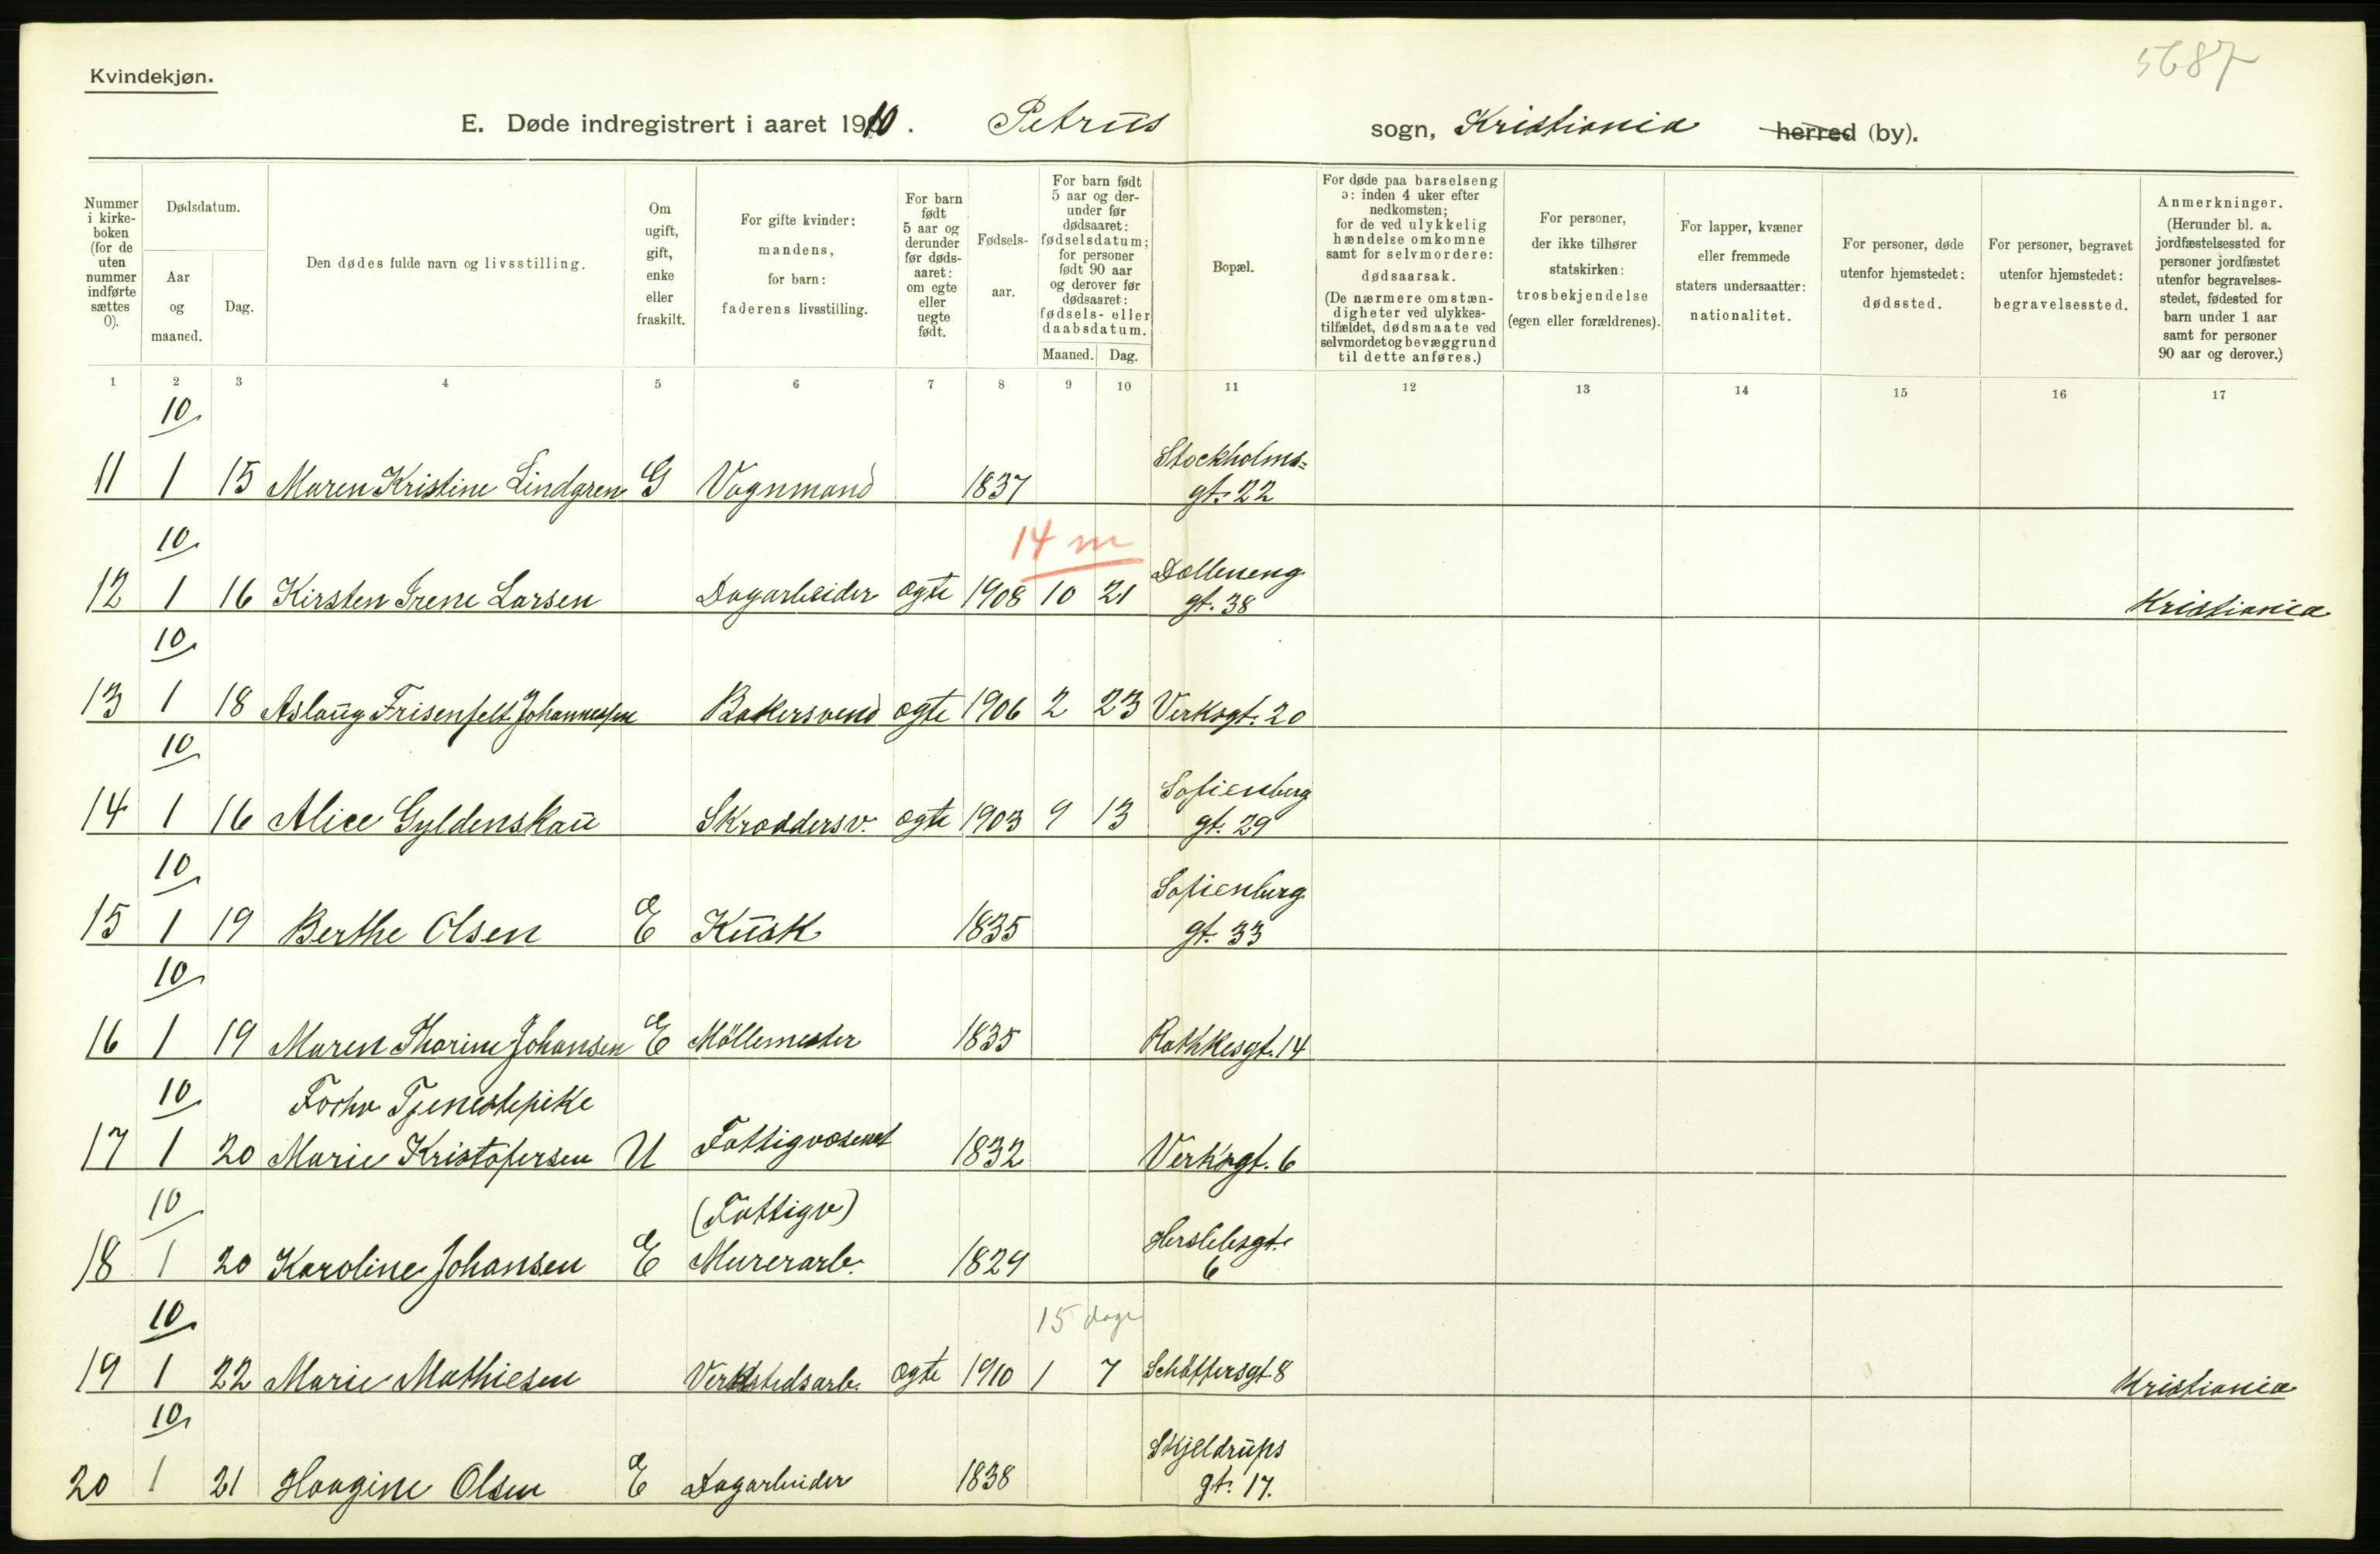 5687
Kvindekjøn.
E. Døde indregistrert i aaret 1910. Petrus sogn, Kristiania herred (by).
Nummer i kirke- boken (for de uten nummer indførte sættes 0).
Dødsdatum.
Aar og maaned.
Dag.
Den dødes fulde navn og livsstilling.
Om ugift, gift, enke eller fraskilt.
For gifte kvinder: mandens, for barn: faderens livsstilling.
For barn født 5 aar og derunder før døds- aaret: om egte eller uegte født.
Fødsels- aar.
For barn født 5 aar og der- under før dødsaaret: fødselsdatum; for personer født 90 aar og derover før dødsaaret: fødsels- eller daabsdatum.
Maaned. Dag.
Bopæl.
For døde paa barselseng ɔ: inden 4 uker efter nedkomsten; for de ved ulykkelig hændelse omkomne samt for selvmordere: dødsaarsak. (De nærmere omstæn- digheter ved ulykkes- tilfældet, dødsmaate ved selvmordet og bevæggrund til dette anføres.)
For personer, der ikke tilhører statskirken: trosbekjendelse (egen eller forældrenes).
For lapper, kvæner eller fremmede staters undersaatter: nationalitet.
For personer, døde utenfor hjemstedet: dødssted.
For personer, begravet utenfor hjemstedet: begravelsessted.
Anmerkninger. (Herunder bl. a. jordfæstelsessted for personer jordfæstet utenfor begravelses- stedet, fødested for barn under 1 aar samt for personer 90 aar og derover.)
1 2 3 4 5 6 7 8 9 10 11 12 13 14 15 16 17
10 Stockholms=
11 1 15 Maren Kristine Lindgren G Vognmand 1837 gt. 22
10 14 m Dælleneng
12 1 16 Kirsten Irene Larsen Dagarbeider ægte 1908 10 21 gt. 38 Kristiania
10
13 1 18 Aslaug Frisenfelt Johannessen Bakersvend ægte 1906 2 23 Verksgt. 20
10 Sofienberg
14 1 16 Alice Gyldenskau Skræddersv. ægte 1903 9 13 gt. 29
10 Sofienberg
15 1 19 Berthe Olsen E Kusk 1835 gt. 33
10
16 1 19 Maren Thorine Johansen E Möllemester 1835 Rathkesgt. 14
10 Forhv Tjenestepike
17 1 20 Marie Kristofersen U Fattigvæsenet 1832 Verksgt. 6
10 (Fattigv) Herslebsgt.
18 1 20 Karoline Johansen E Murerarb. 1829 6
10 15 dage
19 1 22 Marie Mathiesen Verkstedsarb. ægte 1910 1 7 Schöttersgt. 8 Kristiania
10 Skjeldrups
20 1 21 Haagine Olsen E Dagarbeider 1838 gt. 17.